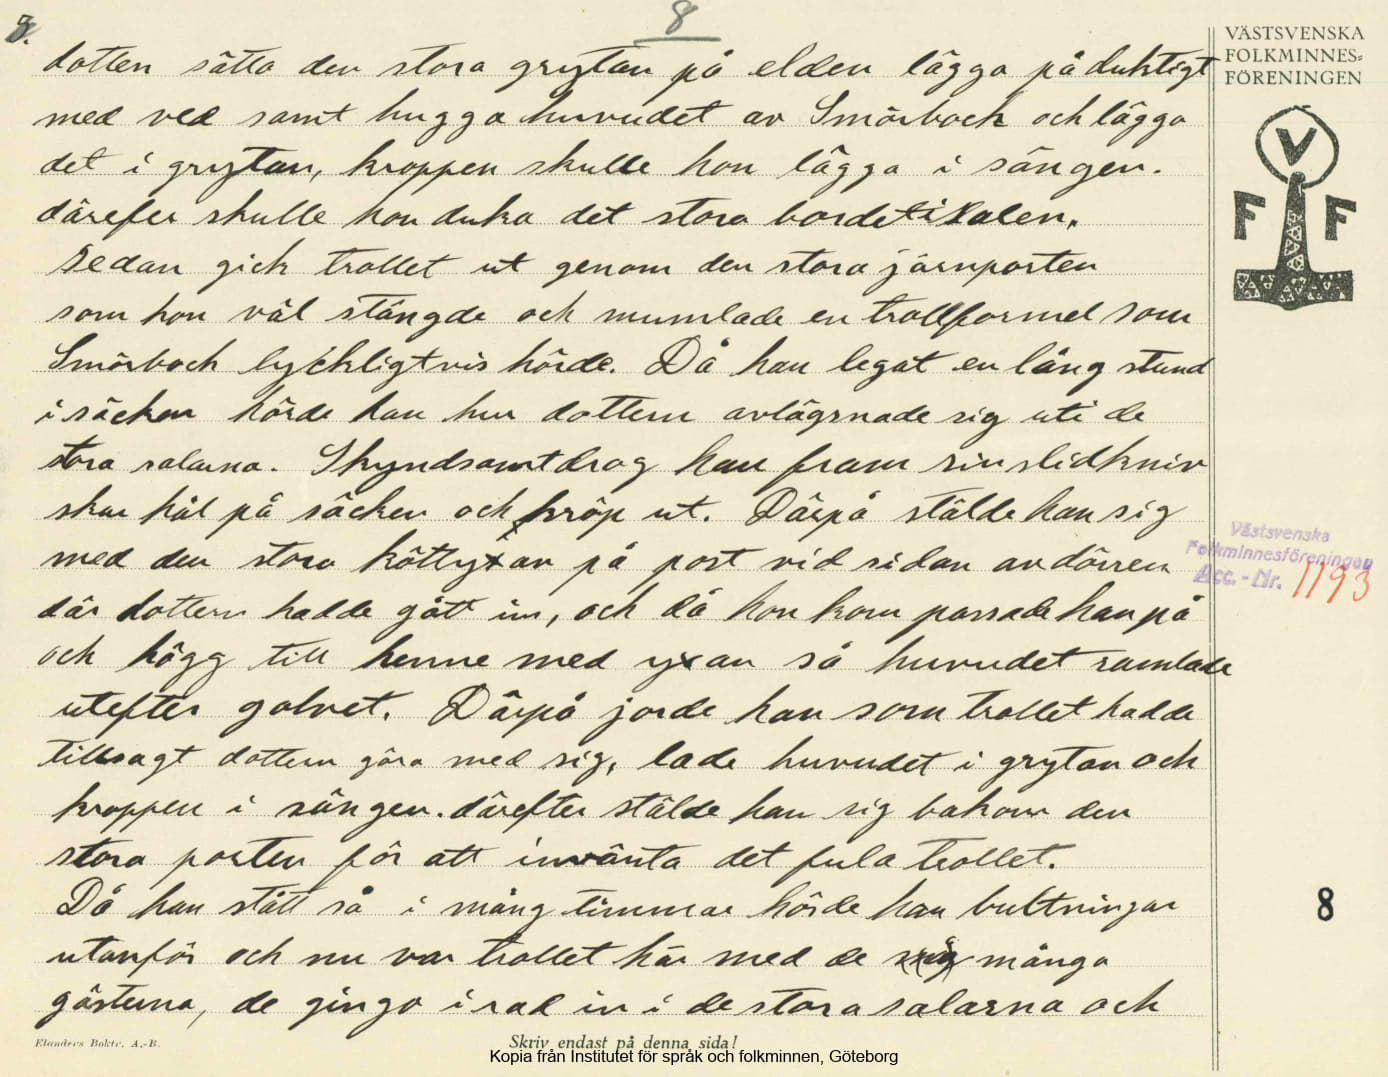 8.
8
dotten sätta den stora grytan på elden lägga på duktigt
med ved samt hugga huvudet av Smörbock och lägga
det i grytan, kroppen skulle hon lägga i sängen.
därefer skulle hon duka det stora bordet i salen.
Sedan gick trollet ut genom den stora järnporten
som hon väl stängde och mumlade en trollformel som
Smörbock lyckligtvis hörde. Då han legat en lång stund
i säcken hörde han hur dottern avlägsnade sig uti de
stora salarna. Skyndsamt drog han fram sin slidkniv
skar hål på säcken och kröp ut. Därpå stälde han sig
med den stora köttyxan på post vid sidan av dörren
där dottern hadde gått in, och då hon kom passade han på
och högg till henne med yxan så huvudet ramlade
utefter golvet. Därpå jorde han som trollet hadde
tillsagt dottern göra med sig, lade huvudet i grytan och
kroppen i sängen. därefter stälde han sig bakom den
stora porten för att invänta det fula trollet.
Då han stått så i mång timmar hörde han bultningar
utanför och nu var trollet här med de många
gästerna, de gingo i rad in i de stora salarna och
VÄSTSVENSKA
FOLKMINNES=
FÖRENINGEN
V
F F
Västsvenska
Folkminnesföreningen
Acc. - Nr. 1193
8
Elanders Boktr. A.-B.
Skriv endast på denna sida!
Kopia från Institutet för språk och folkminnen, Göteborg